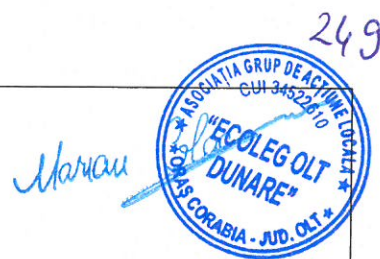 249
ASOCIAȚIA GRUP DE ACȚIUNE LOCALĂ
CUI 34522610
"ECOLEG OLT
DUNARE"
ORAȘ CORABIA - JUD. OLT
Marian